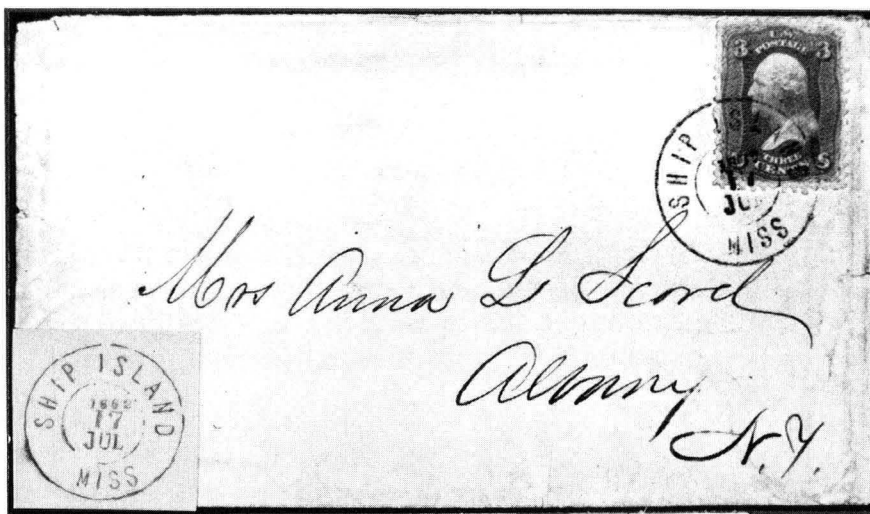 3 U.S. 3
POSTAGE
THREE
CENTS
SHIP ISL
17
JUL
MISS
Mrs Anna L
Albany
N.Y.
SHIP ISLAND
1862
17
JUL
MISS